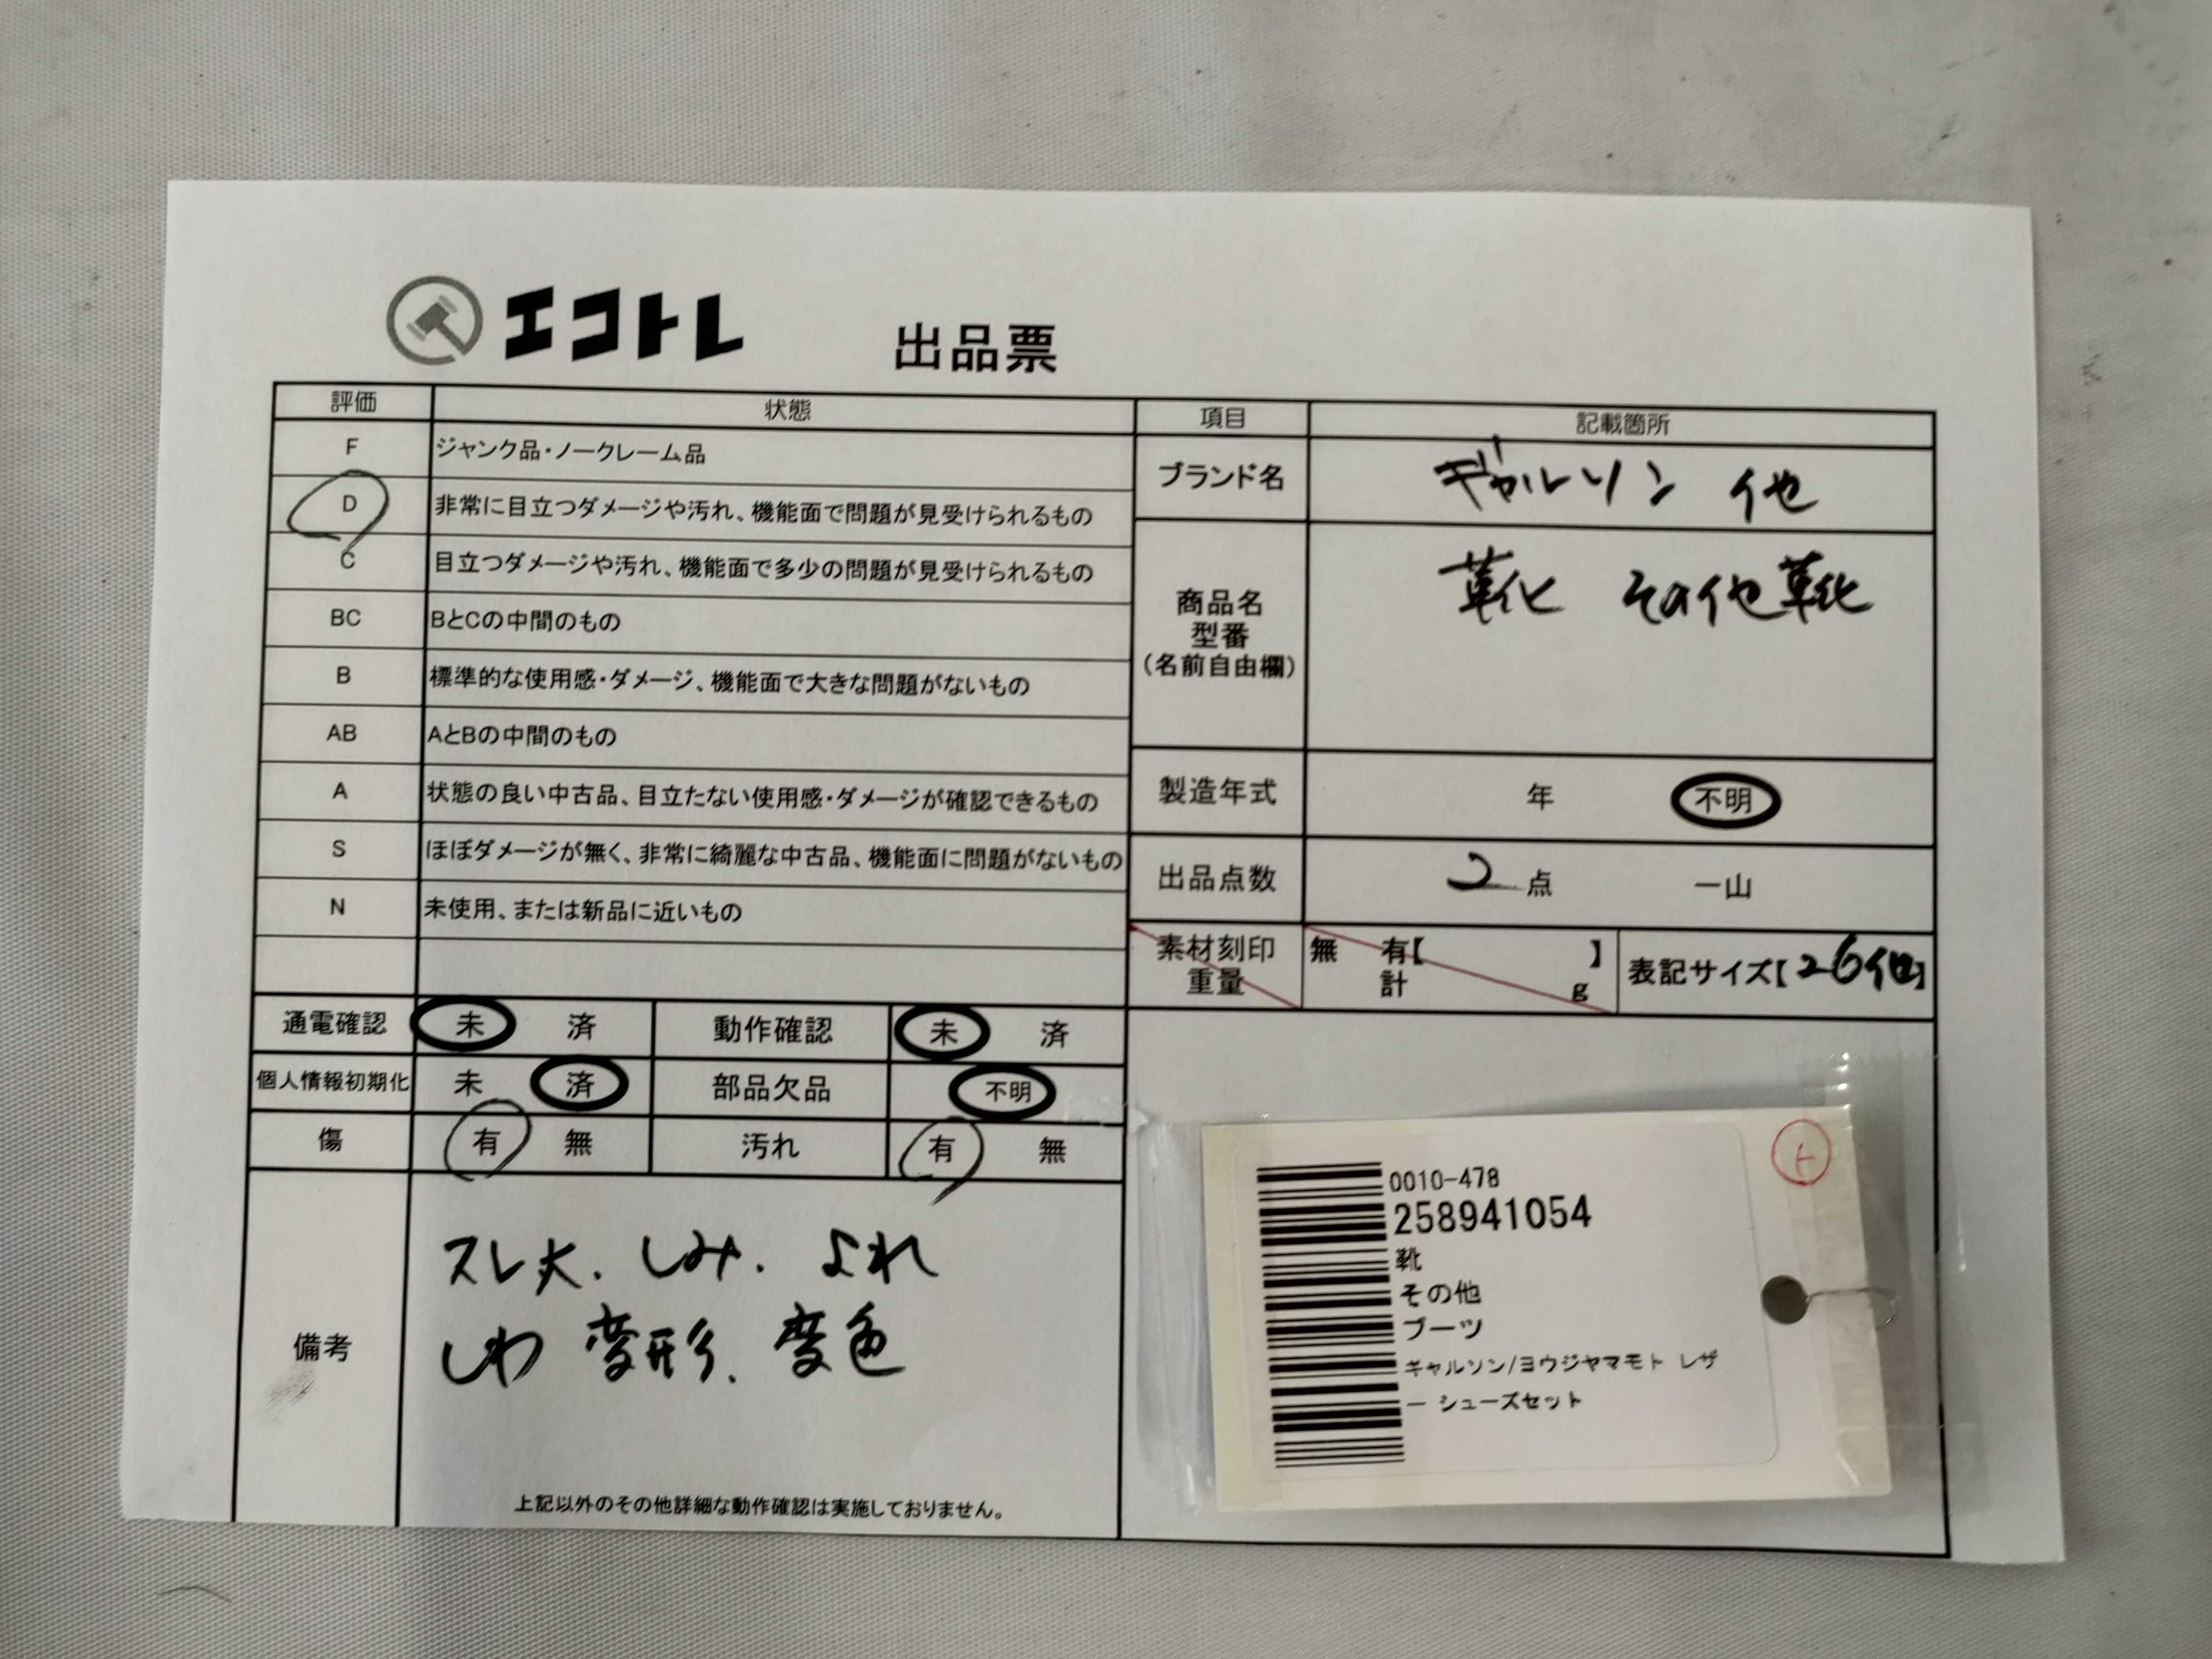 エコトレ 出品票
評価 状態
F ジャンク品・ノークレーム品
D 非常に目立つダメージや汚れ、機能面で問題が見受けられるもの
C 目立つダメージや汚れ、機能面で多少の問題が見受けられるもの
BC BとCの中間のもの
B 標準的な使用感・ダメージ、機能面で大きな問題がないもの
AB AとBの中間のもの
A 状態の良い中古品、目立たない使用感・ダメージが確認できるもの
S ほぼダメージが無く、非常に綺麗な中古品、機能面に問題がないもの
N 未使用、または新品に近いもの
項目 記載箇所
ブランド名 ギャルソン 他
商品名 靴 その他靴
型番
(名前自由欄)
製造年式 年 不明
出品点数 2点 一山
素材刻印 無 有【 】
重量 計 g
表記サイズ【26他】
通電確認 未 済 動作確認 未 済
個人情報初期化 未 済 部品欠品 不明
傷 有 無 汚れ 有 無
備考
スレ大.しみ.よれ
しわ 変形.変色
上記以外のその他詳細な動作確認は実施しておりません。
ト
0010-478
258941054
靴
その他
ブーツ
ギャルソン/ヨウジヤマモト レザ
ー シューズセット